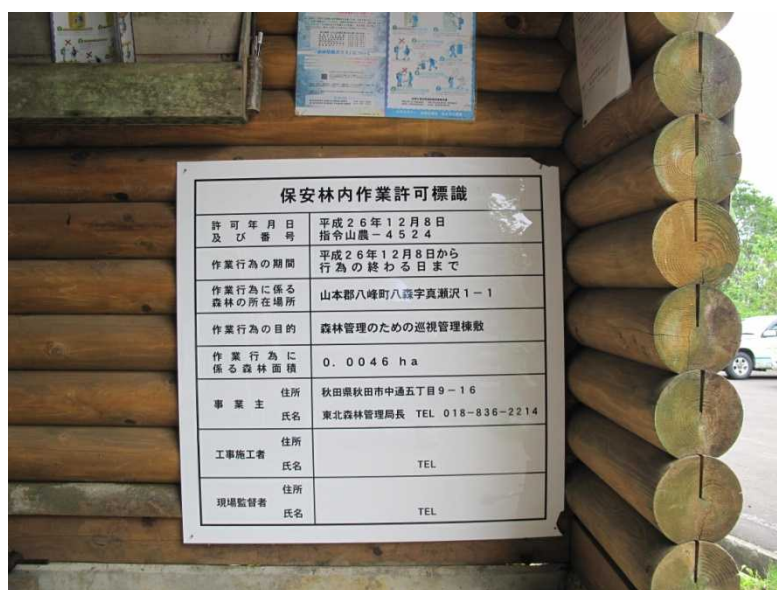 保安林内作業許可標識
許可年月日
及び番号
平成26年12月8日
指令山農-4524
作業行為の期間
平成26年12月8日から
行為の終わる日まで
作業行為に係る
森林の所在場所
山本郡八峰町八森字真瀬沢1-1
作業行為の目的
森林管理のための巡視管理棟敷
作業行為に
係る森林面積
0.0046 ha
事業主
住所
秋田県秋田市中通五丁目9-16
氏名
東北森林管理局長 TEL 018-836-2214
工事施工者
住所
氏名
TEL
現場監督者
住所
氏名
TEL